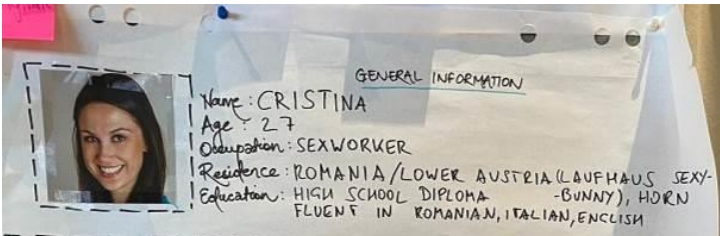 GENERAL INFORMATION
Name: CRISTINA
Age: 27
Occupation: SEXWORKER
Residence: ROMANIA/LOWER AUSTRIA (LAUFHAUS SEXY-
Education: HIGH SCHOOL DIPLOMA -BUNNY), HORN
FLUENT IN ROMANIAN, ITALIAN, ENGLISH